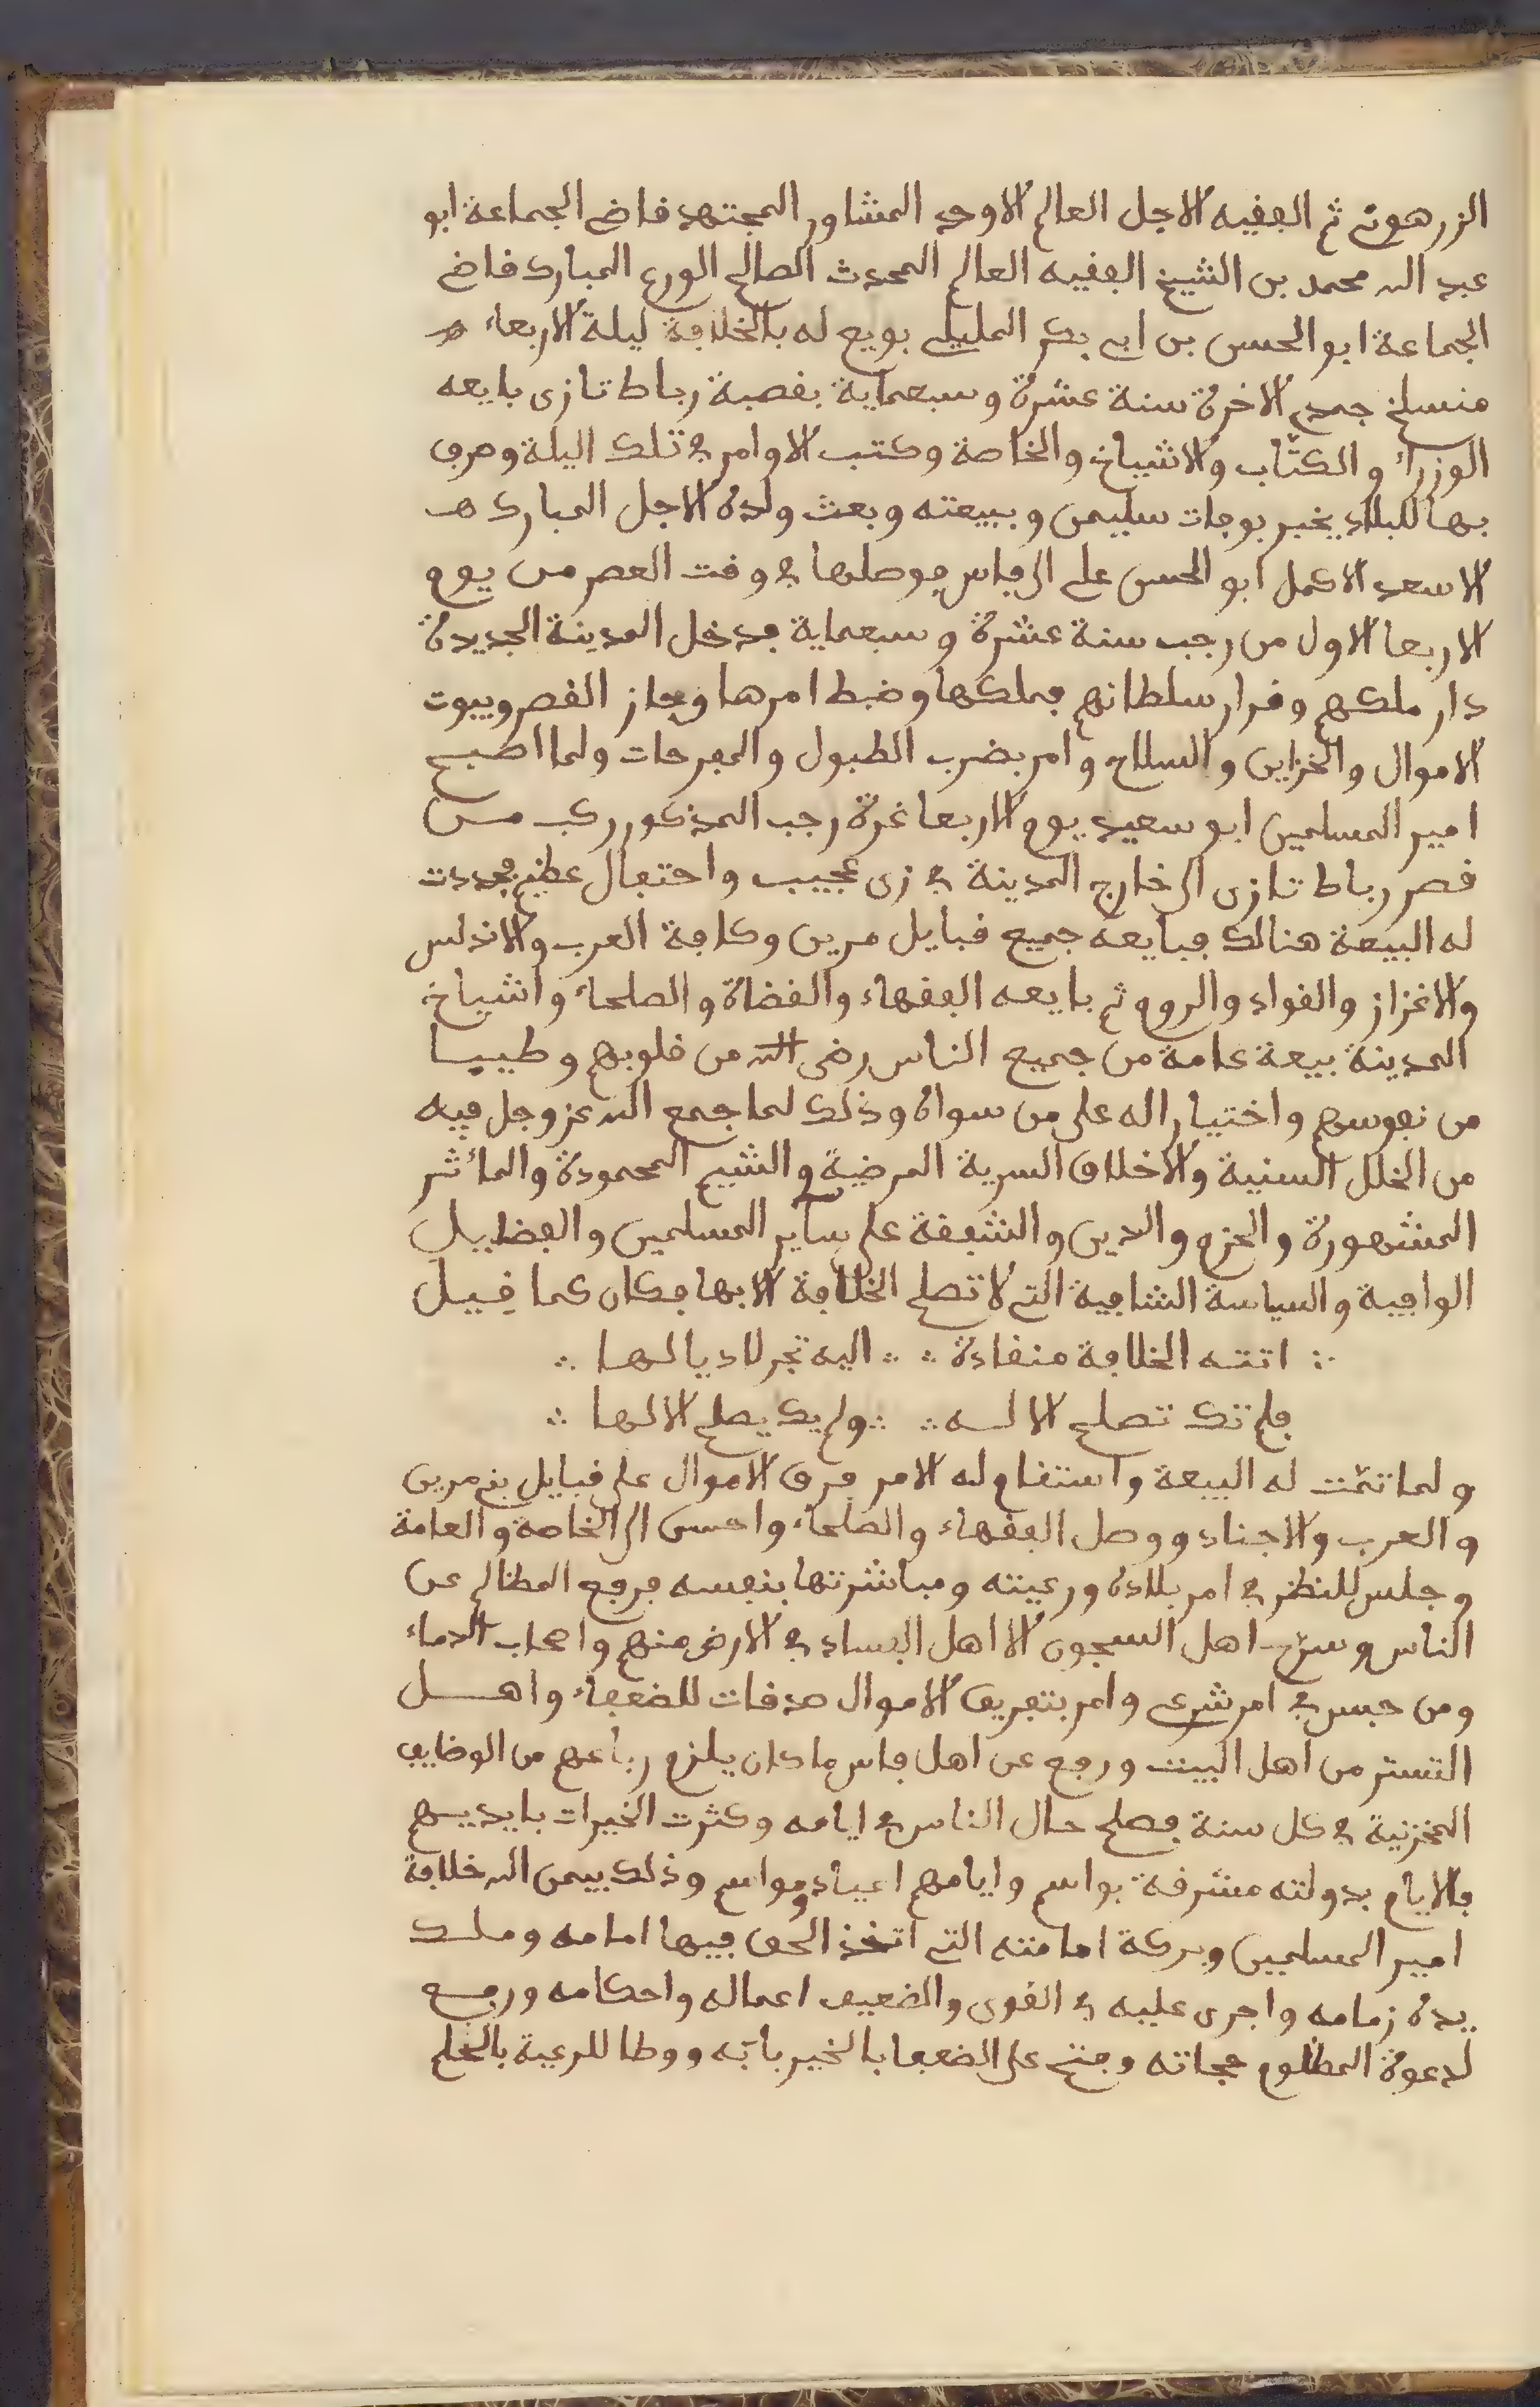 الزرهونى ثم الفقيه الاجل العالم الاوحد المشاور المجتهد قاضى الجماعة ابو
عبد الله محمد بن الشيخ الفقيه العالم المحدث الصالح الورع المبارك قاضى
الجماعة ابو الحسن بن ابى بكر المليلى بويع له بالخلافة ليلة الاربعاء
منسلخ جمدى الاخرة سنة عشرة وسبعماية بقصبة رباط تازى بايعه
الوزراء والكتّاب والاشياخ والخاصة وكتب الاوامر فى تلك اليلة وصرف
بها للبلاد يخبر بوفات سليمن وببيعته وبعث ولده الاجل المبارك
الاسعد الاكمل ابو الحسن على الى فاس فوصلها فى وقت العصر من يوم
الاربعا الاول من رجب سنة عشرة وسبعماية فدخل المدينة الجديدة
دار ملكهم وقرار سلطانهم فملكها وضبط امرها وحاز القصر وبيوت
الاموال والخزاين والسلاح وامر بضرب الطبول والمفرحات ولما اصبح
امير المسلمين ابو سعيد يوم الاربعا غرة رجب المذكور ركب من
قصر رباط تازى الى خارج المدينة فى زى عجيب واحتفال عظيم فجددت
له البيعة هنالك فبايعه جميع قبايل مرين وكافة العرب والاندلس
والاغزاز والقواد والروم ثم بايعه الفقهاء والقضاة والصلحاء واشياخ
المدينة بيعة عامة من جميع الناس رضى الله من قلوبهم وطيبا
من نفوسهم واختيارا له على من سواه وذلك لما جمع الله عز وجل فيه
من الخلل السنية والاخلاق السرية المرضية والشيم المحمودة والمأثر
المشهورة والحزم والدين والشفقة على ساير المسلمين والفضاييل
الوافية والسياسة الشافية التى لا تصلح الخلافة الا بها فكان كما قِيل
اتته الخلافة منقادة ∴ ∴ اليه تجرلاد يالها ∴
فلم تك تصلح الا له ∴ ∴ ولم يك يصلح الا لها ∴
ولما تمّت له البيعة واستقام له الامر فرق الاموال على قبايل بنى مرين
والعرب والاجناد ووصل الفقهاء والصلحاء واحسن الى الخاصة والعامة
وجلس للنظر فى امر بلاده ورعيته ومباشرتها بنفسه فرفع المظالم عن
الناس وسرّح اهل السجون الا اهل الفساد فى الارض منهم واصحاب الدماء
ومن حبس فى امر شرعى وامر بتفريق الاموال صدقات للضعفاء واهل
التستر من اهل البيت ورفع عن اهل فاس ما كان يلزم رباعهم من الوضايف
المخزنية فى كل سنة فصلح حال الناس فى ايامه وكثرت الخيرات بايديهم
فالايام بدولته مشرفة بواسم وايامهم اعياد ومواسم وذلك بيمن الله خلافة
امير المسلمين وبركة امامته التى اتخذ الحق فيها امامه وملك
يده زمامه واجرى عليه فى القوى والضعيف اعماله واحكامه ورفع
لدعوة المظلوم حجاته وفتح على الضعفا بالخير بابه ووطا للرعية بالحلم